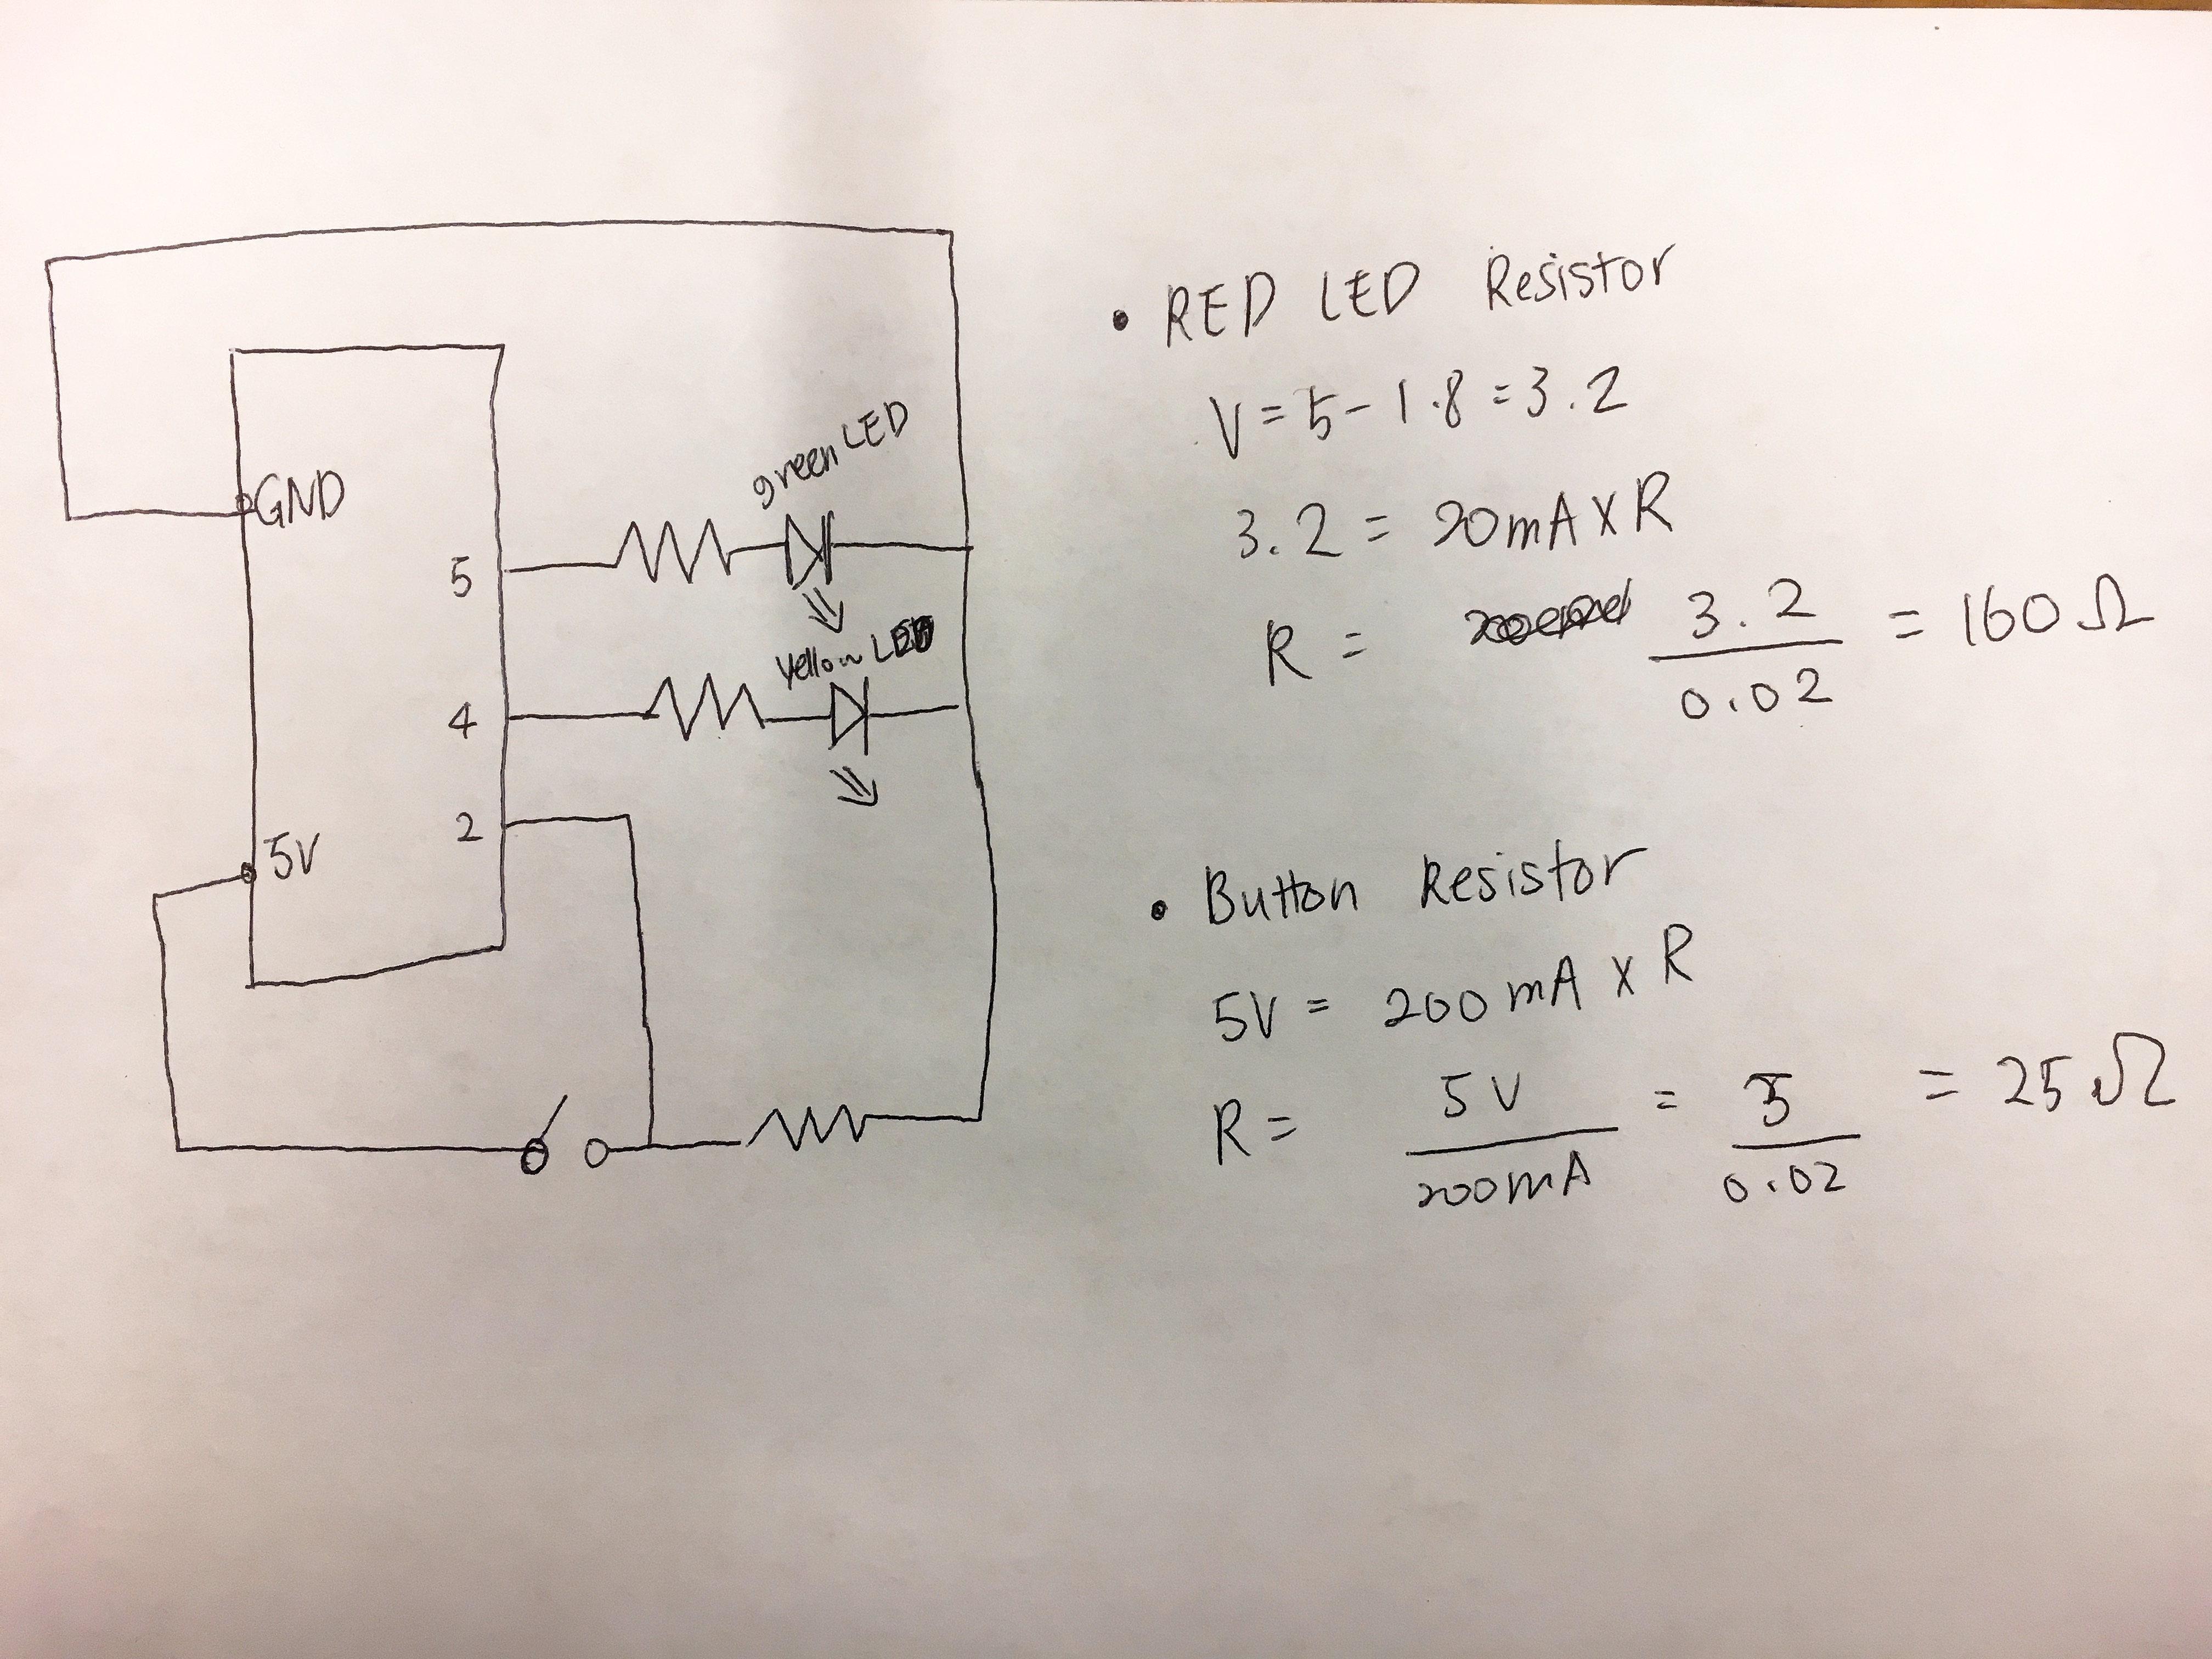 GND
5V
5
4
2
green LED
yellow LED
• RED LED Resistor
V = 5 - 1.8 = 3.2
3.2 = 20mA X R
R = 3.2 / 0.02 = 160 Ω
• Button Resistor
5V = 200 mA x R
R = 5V / 200mA = 5 / 0.02 = 25 Ω